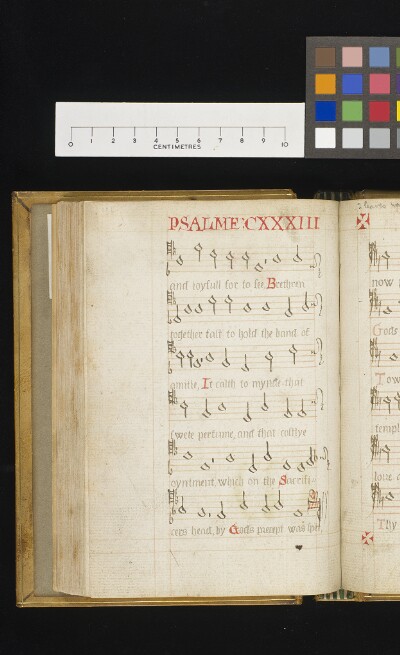 0 1 2 3 4 5 6 7 8 9 10
CENTIMETRES
PSALME CXXXIII
and ioyfull for to see, Brethren
together fast to hold the band of
amitie, It calth to mynde that
swete perfume, and that costlye
oyntment, which on the Sacrifi-
cers head, by Gods precept was
now
Gods
templ
Thy